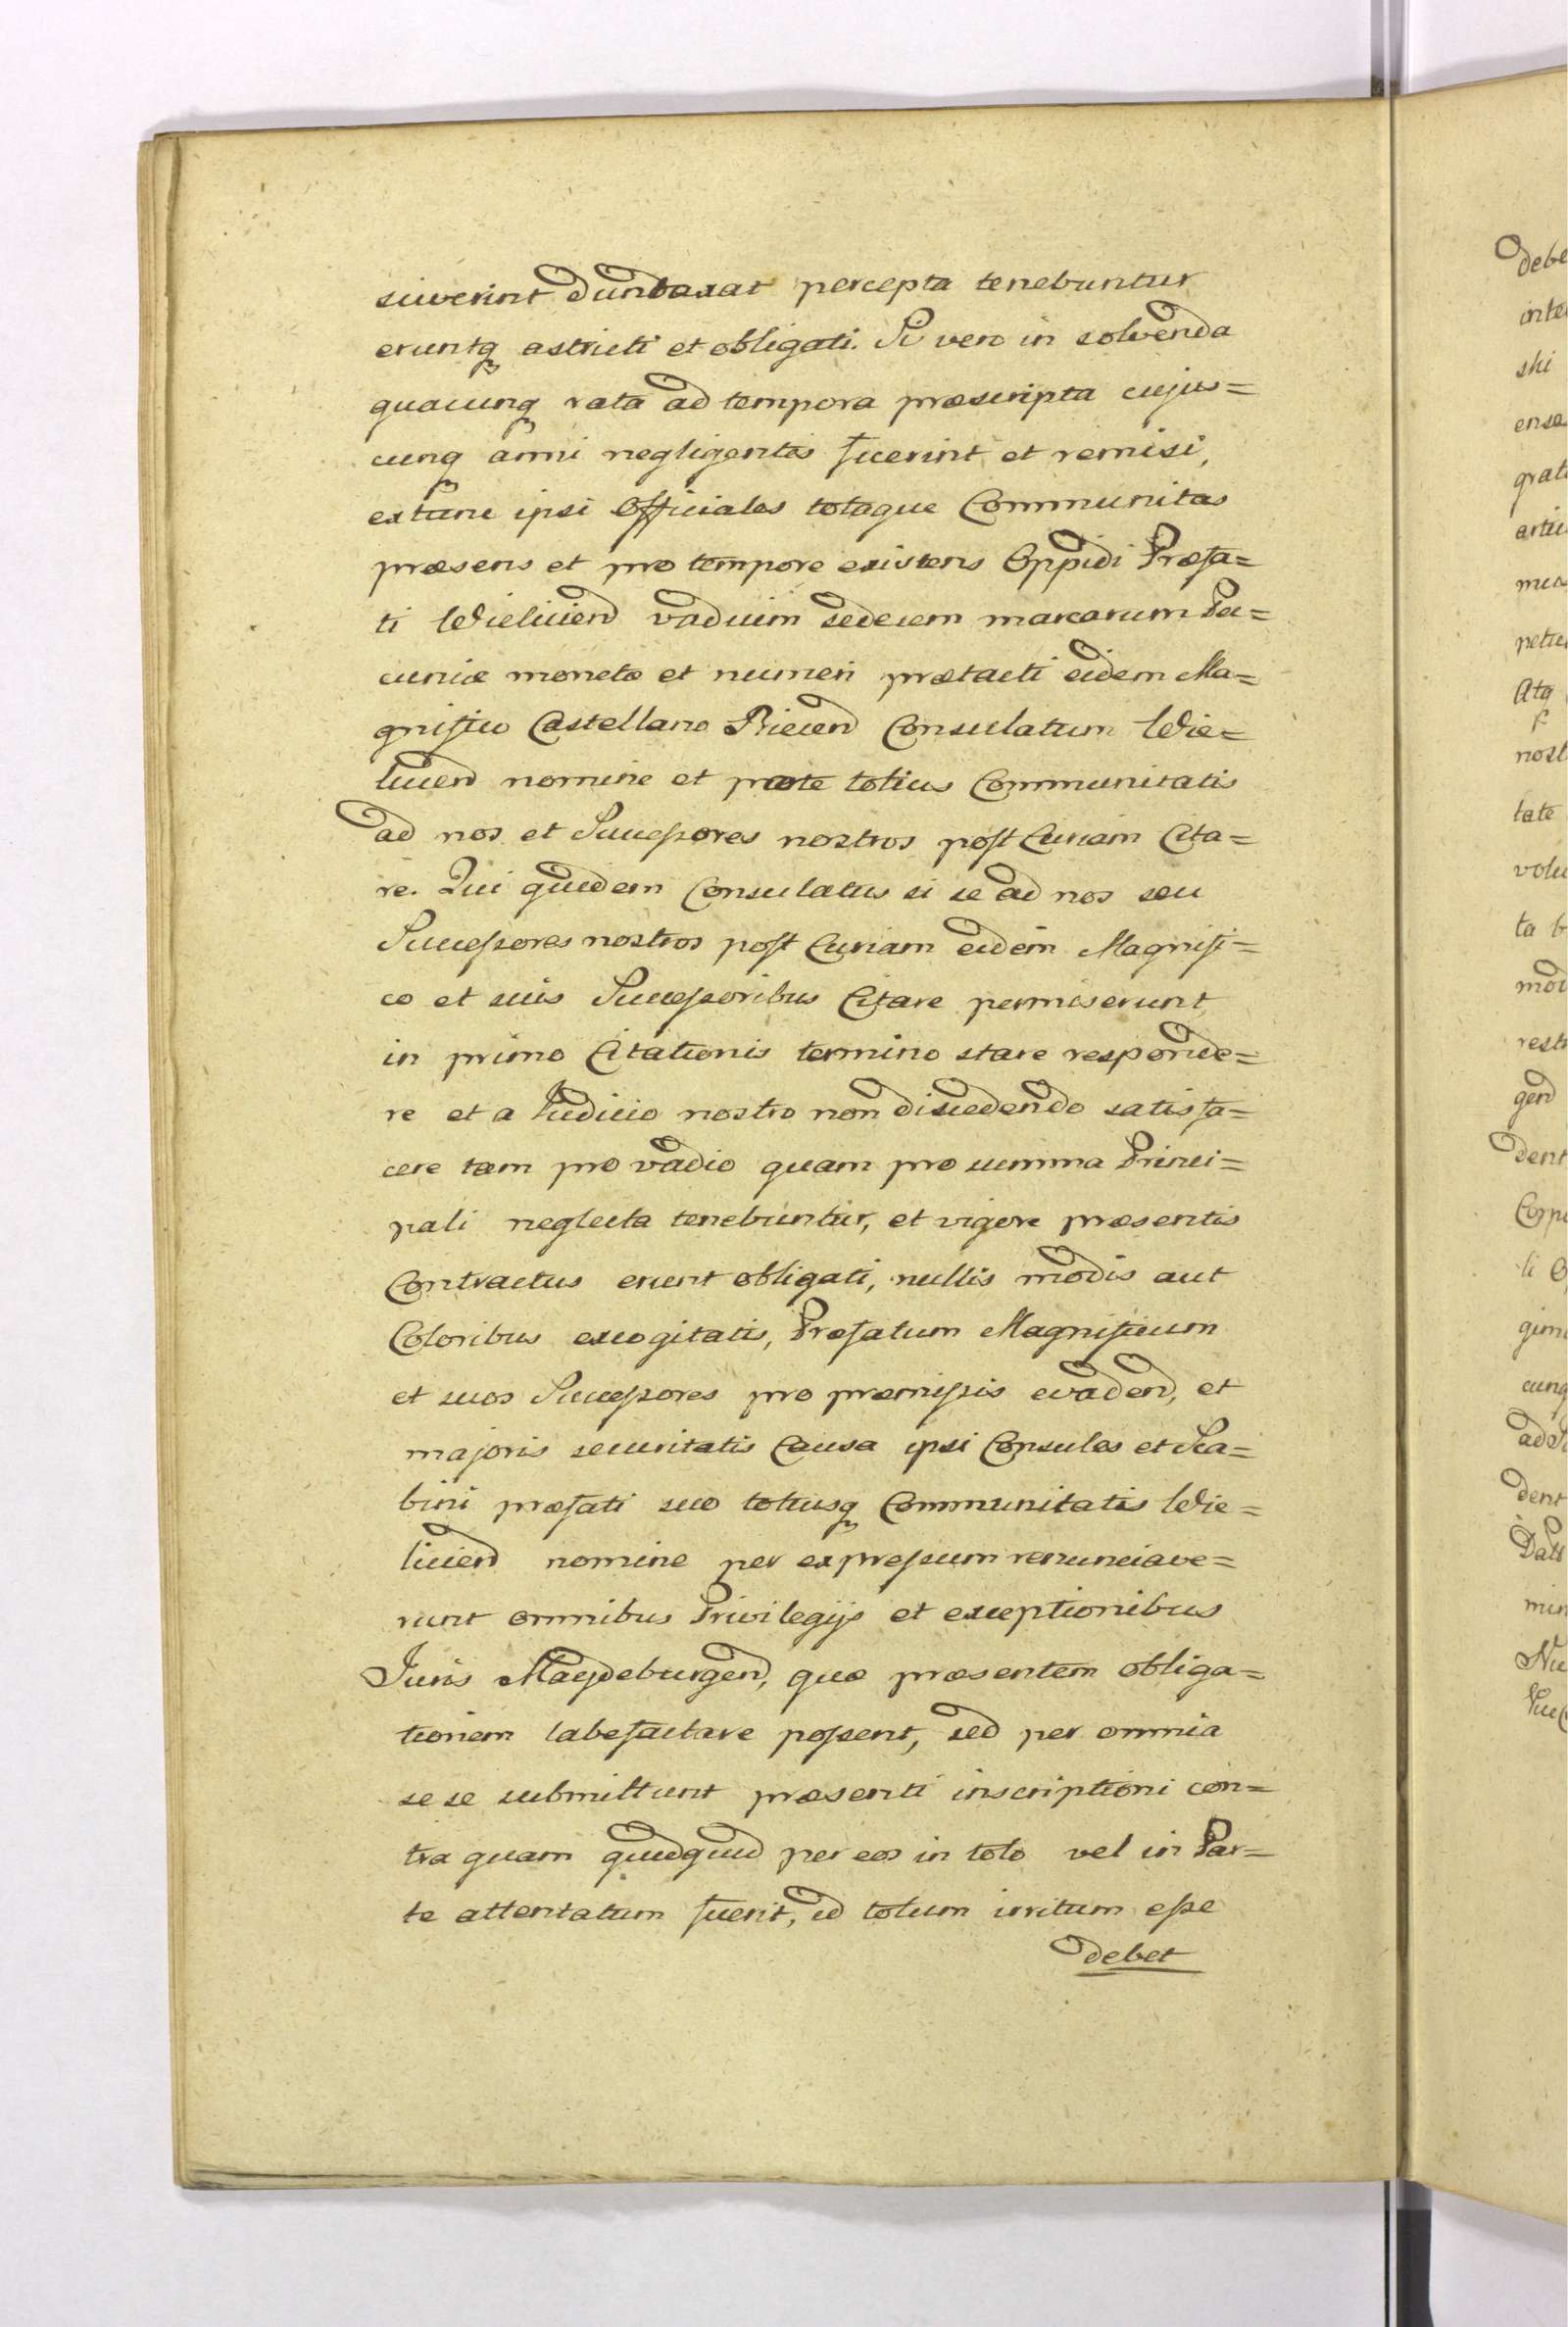 suverint duntaxat percepta tenebuntur
eruntq astricti et obligati. Si vero in solvenda
quacunq rata ad tempora præscripta cujus=
cunq anni negligentes fuerint et remisi,
extunc ipsi Officiales totaque Communitas
præsens et pro tempore existens Oppidi Præfa=
ti Wieliciend vadium sedecem marcarum Pe=
cuniæ monetæ et numeri prætacti eidem Ma=
gnifico Castellano Biecend Consulatum Wie=
liciend nomine et parte totius Communitatis
ad nos et Successores nostros post Curiam Cita=
re. Qui quidem Consulatus si se ad nos seu
Successores nostros post Curiam eidem Magnifi=
co et suis Successoribus Citare permiserunt
in primo Citationis termino stare responde=
re et a Iudicio nostro non discedendo satisfa=
cere tam pro vadio quam pro summa Princi=
pali neglecta tenebuntur, et vigore præsentis
Contractus erunt obligati, nullis modis aut
Coloribus excogitatis, Præfatum Magnificum
et suos Successores pro præmissis evadend, et
majoris securitatis Causa ipsi Consules et Sca=
bini præfati suo totiusq Communitatis Wie=
liciend nomine per expressum renunciave=
runt omnibus Privilegijs et exceptionibus
Iuris Maydeburgend, quæ præsentem obliga=
tionem labefactare possent, sed per omnia
se se submittunt præsenti inscriptioni con=
tra quam quidquid per eos in toto vel in Par=
te attentatum fuerit, id totum irritum esse
debet